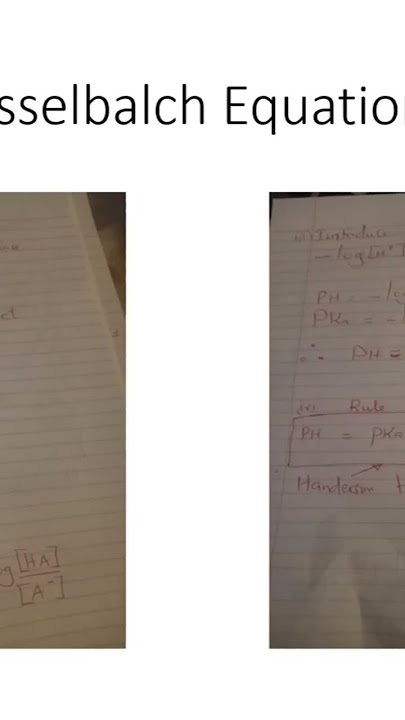 sselbalch Equation
ct
g [HA]
[A⁻]
iii) Introduce
- log [H⁺]
PH = - log
PKa = - l
∴ PH =
iv) Rule
PH = PKa
Handerson H